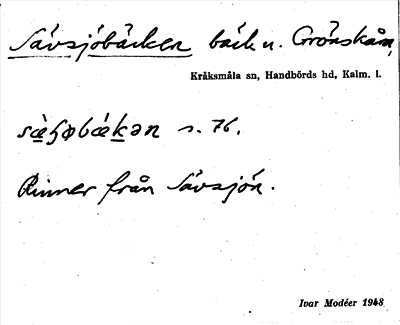 Sävsjöbäcken bäck u. Grönskåra,
Kråksmåla sn, Handbörds hd, Kalm. l.
sæ̀ʃøbæ̀kən s. 76.
Rinner från Sävsjön.
Ivar Modéer 1948